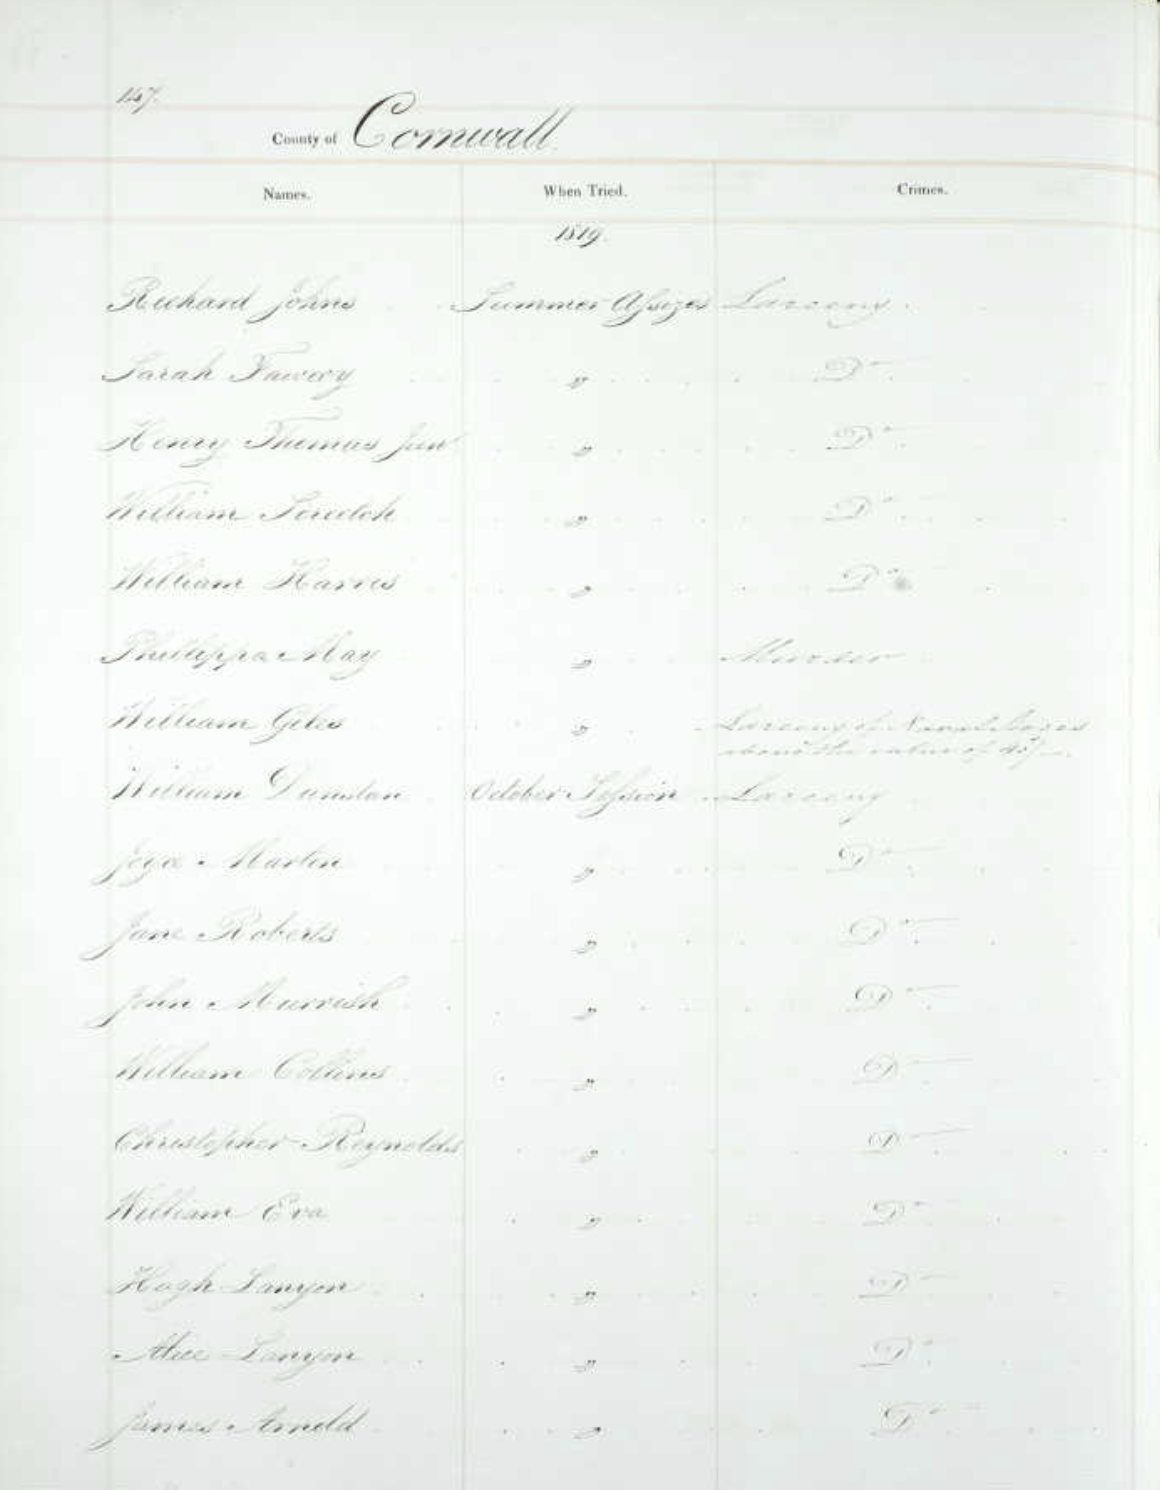 147.
County of Cornwall.
Names. When Tried. Crimes.
1819.
Richard Johns Summer Assizes Larceny
Sarah " Do
Henry Thomas Junr " Do
William " Do
William Harris " Do
Phillippa May " Murder
William Giles " Larceny of Naval Stores
above the value of 40/-
William Dunstan October Session Larceny
Joyce Martin " Do
Jane Roberts " Do
John Murrish " Do
William Collins " Do
Christopher Reynolds " Do
William Eva " Do
Hugh Lanyon " Do
Alice Lanyon " Do
James Arnold " Do